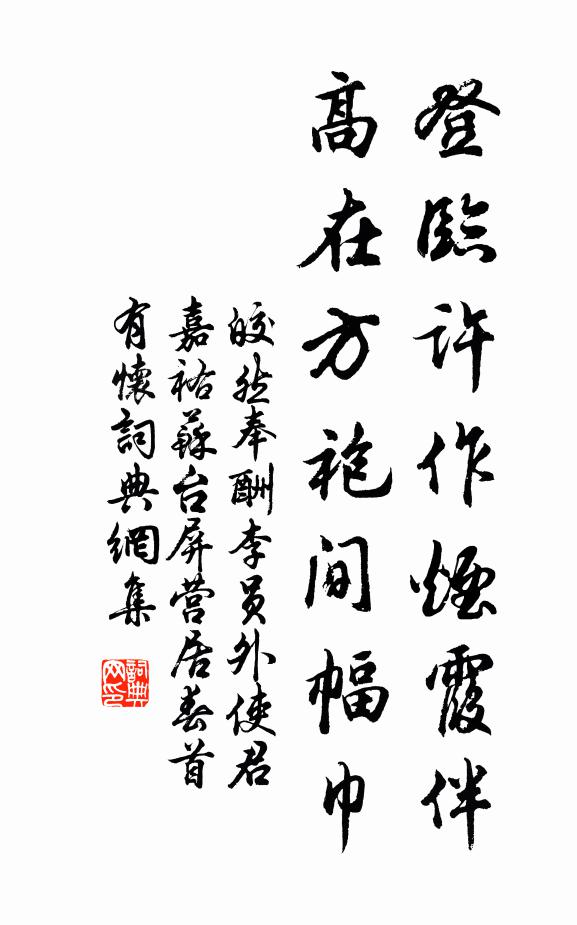 登臨許作煙霞伴
高在方袍間幅巾
皎然奉酬李員外使君
嘉祐蘇台屏營居春首
有懷詞典網集
詞典网印